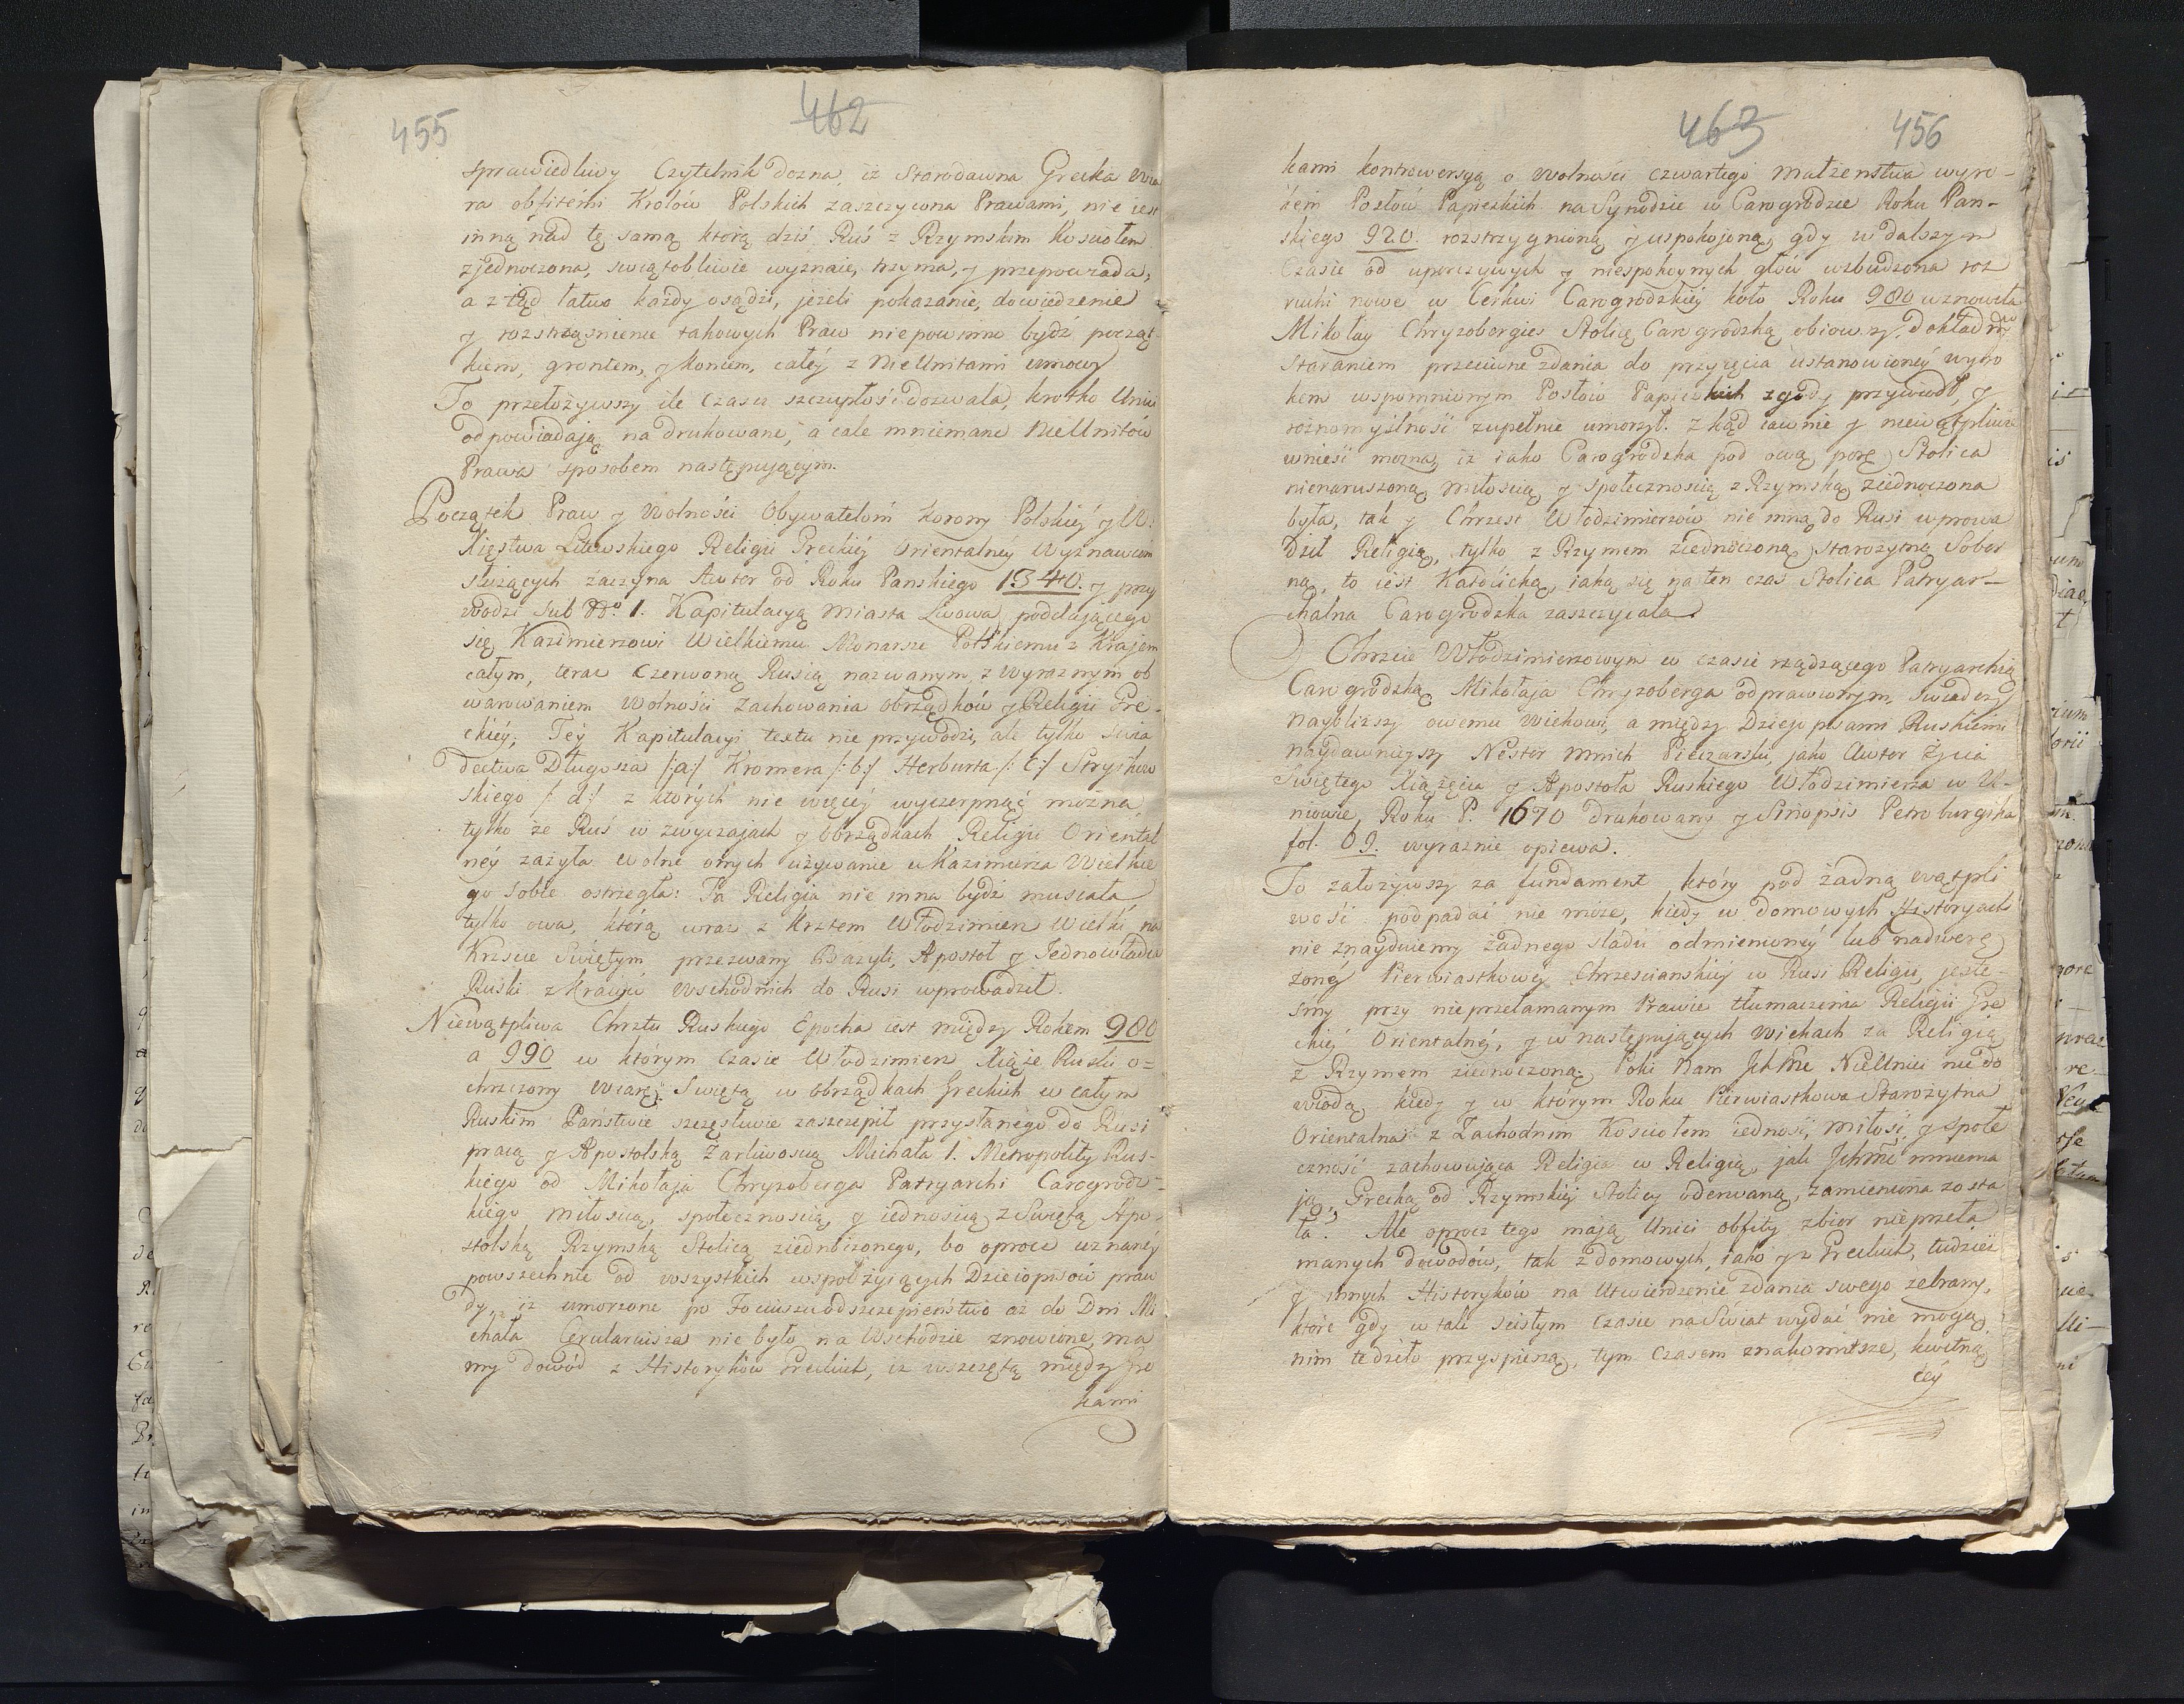 455
462
sprawiedliwy Czytelnik dozna, iż Starodawna Grecka Wia
ra obfitemi Krolów Polskich zaszczycona Prawami, nie iest
inną nad tę samą którą dziś Ruś z Rzymskim Kosciołem
zjednoczona, swiątobliwie wyznaie, trzyma, y przepowiada,
a z tąd łatwo każdy osądzi, jeżeli pokazanie, dowiedzenie
y roztrząśnienie takowych Praw niepowinno bydź począt
kiem, grontem, y koniem, całéy z Nie Unitami umowy
To przełożywszy ile Czasu szczupłość dozwala, krotko Unici
odpowiadają na drukowane, a cale mniemane NieUnitów
Prawa sposobem następującym.
Początek Praw y Wolności Obywatelom Korony Polskiéy y W:
Xięstwa Litewskiego Religii Greckiéy Orientalnéy Wyznawcom
służących zaczyna Autor od Roku Panskiego 1340. y przy
wodzi sub No 1. Kapitulacyą Miasta Lwowa, poddającego
się Kazimierzowi Wielkiemu Monarsze Polskiemu z Krajem
całym, teraz Czerwoną Rusią nazwanym, z wyraznym ob
warowaniem Wolności Zachowania obrządków y Religii Gre-
ckiéy; Téy Kapitulacyi textu nie przywodzi, ale tylko swia
dectwa Długosza /:a:/ Kromera /:b:/ Herburta /:c:/ Stryikow
skiego /:d:/ z których nie więcéy wyczerpnąć można
tylko że Ruś w zwyczajach y Obrządkach Religii Oriental
néy zażyła wolne onych używanie u Kazimierza Wielkie
go sobie ostrzegła: Ta Religia nie inna bydź musiała,
tylko owa, którą wraz z Krztem Włodzimierz Wielki na
Krzscie Swiętym przezwany Bazyli, Apostoł y Jednowładca
Ruski z Kraiów Wschodnich do Rusi wprowadził.
Niewątpliwa Chrztu Ruskiego Epocha iest między Rokiem 980
a 990 w którym czasie Włodzimierz Xiąże Ruski o=
chrzczony Wiarę Swiętą w obrządkach Greckich w całym
Ruskim Państwie szczęśliwie zaszczepił przysłanego do Rusi
pracą y Apostolską Zarliwoscią Michała 1. Metropolity Rus-
kiego od Mikołaja Chryzoberga Patryarchi Carogrodz-
kiego miłoscią, społecznoscią, y iednoscią z Swiętą Apo-
stolską Rzymską Stolicą ziednoczonego, bo oprocz uznanéy
powszechnie od wszystkich wspołżyiących Dzieiopisów praw
dy, iż umorzone po Focyuszu odszczepieństwo aż do Dni Mi
chała Cerulariusza nie było na Wschodzie znowione, ma
my dowód z Historyków Greckich, iż wszczętą między Gre
kami
463
456
kami kontrowersyą o wolności czwartego małżenstwa wyro-
kiem Posłów Papiezkich na Synodzie w Carogrodzie Roku Pan-
skiego 920. rozstrzygnioną y uspokojoną, gdy w dalszym
Czasie od uporczywych y niespokoynych głów wzbudzona roz
ruchi nowe w Cerkwi Carogrodzkiéj koło Roku 980 wznowiła
Mikołay Chryzobergies Stolicę Carogrodzką obiowszy, Dokładnym
staraniem przeciwne zdania do przyięcia ustanowionéy wyro
kiem wspomnionym Posłów Papiezkich zgody przywiodł, y
rożnomyślność zupełnie umorzył. Z kąd iawnie y niewątpliwie
wnieść można, iż iako Carogrodzka pod ową porę Stolica
nienaruszoną miłoscią y społecznoscią z Rzymską ziednoczona
była, tak y Chrzest Włodzimierzów nie inną do Rusi wprowa
dził Religią, tylko z Rzymem ziednoczoną Starożytną Sobor
ną, to iest Katolicką, iaką się na ten czas Stolica Patryar-
chalna Carogrodzka zaszczycała
O Chrzcie Włodzimierzowym w czasie rządzącego Patryarchią
Carogrodzką Mikołaja Chryzoberga odprawionym, swiadczy
naybliższy owemu Wiekowi, a między Dziejopisami Ruskiemi
naydawnieyszy Nestor Mnich Pieczarski, jako Autor Życia
Swiętego Xiążęcia y Apostoła Ruskiego Włodzimierza w U-
niowie Roku P. 1670 drukowany y Sinopsis Petroburgska
fol. 69. wyraznie opiewa.
To założywszy za fundament, który pod żadną wątpli
wość podpadać nie może, kiedy w domowych Historyach
nie znayduiemy żadnego sladu odmienionéy lub nadwerę
żonéy Pierwiastkowéy Chrzescianskiéy w Rusi Religii, jeste-
smy przy nieprzełamanym Prawie tłumaczenia Religii Gre
ckiéy Orientalnéy, y w następujących Wiekach za Religią
z Rzymem ziednoczoną. Poki Nam Jchmć NieUnici nie do
wiodą kiedy y w którym Roku Pierwiastkowa Starożytna
Orientalna z Zachodnim Kosciołem iedność, miłość, y społe
czność zachowująca Religia w Religią, jak Jchmć mniema
ją, Grecką od Rzymskiéj Stolicy oderwaną, zamieniona zosta
ła? Ale oprocz tego mają Unici obfity zbior nieprzeła
manych dowodów, tak z domowych, iako y z Greckich, tudzież
y innych Historyków na utwierdzenie zdania swego zebrany,
które gdy w tak scisłym Czasie na Swiat wydać nie mogą,
nim te dzieło przyspieszą, tym czasem znakomitsze, kwitną
céy